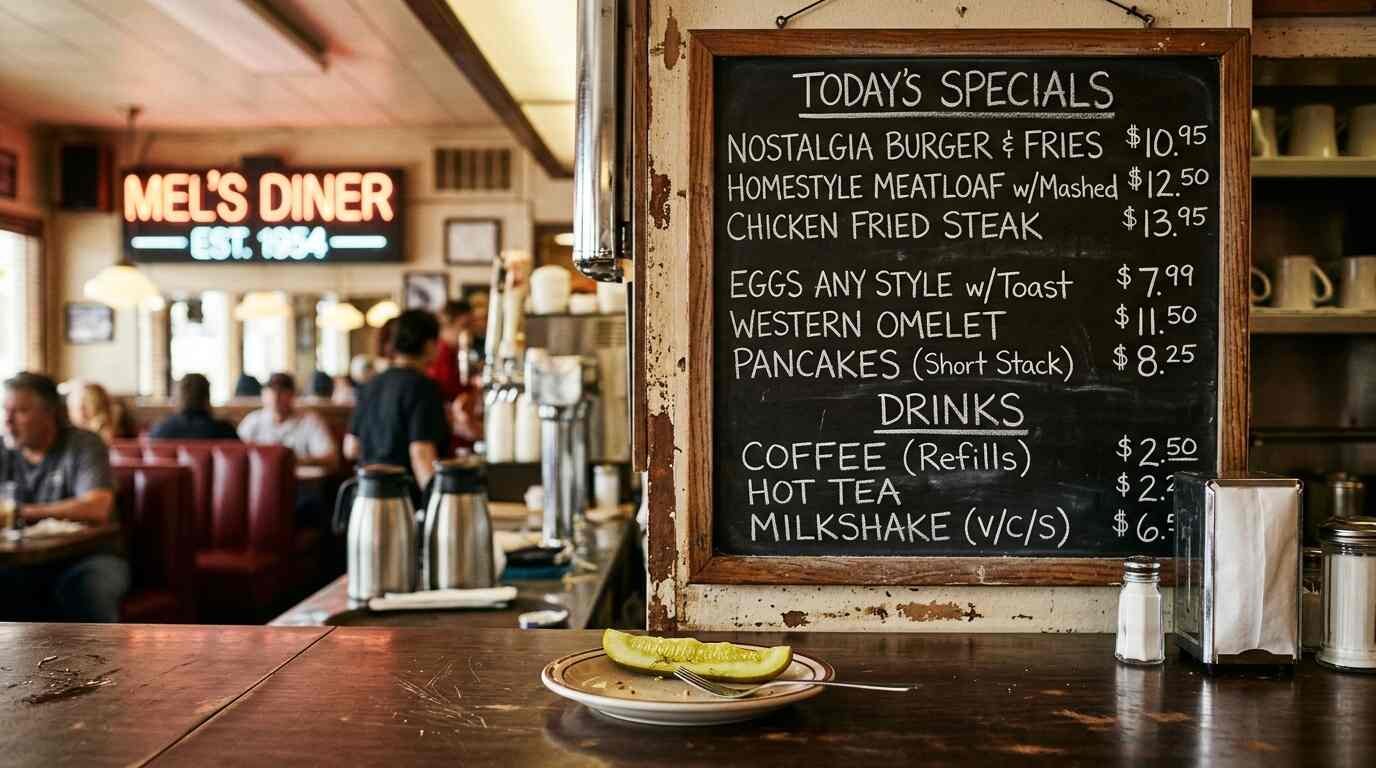 MEL'S DINER
EST. 1954
TODAY'S SPECIALS
NOSTALGIA BURGER & FRIES $10.95
HOMESTYLE MEATLOAF w/Mashed $12.50
CHICKEN FRIED STEAK $13.95
EGGS ANY STYLE w/Toast $7.99
WESTERN OMELET $11.50
PANCAKES (Short Stack) $8.25
DRINKS
COFFEE (Refills) $2.50
HOT TEA
MILKSHAKE (V/C/S)